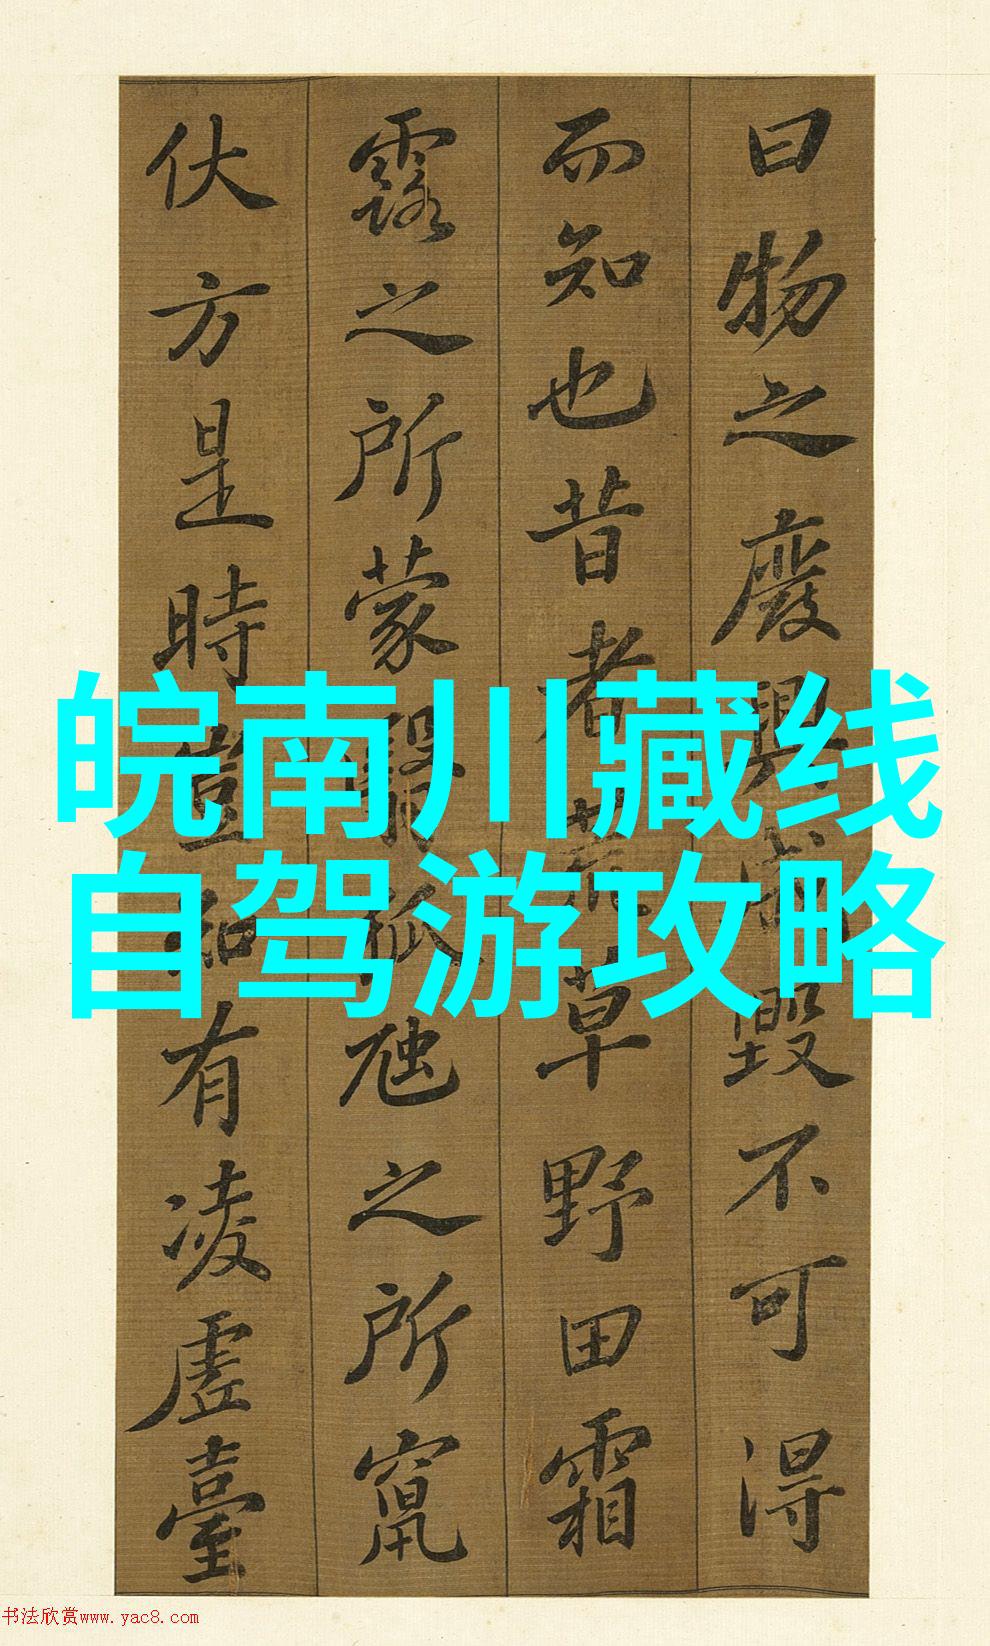 曰物之廢興成毀不可得
而知也昔者荒草野田霜
露之所蒙翳狐虺之所竄
伏方是時豈知有凌虛臺
皖南川藏线
自驾游攻略
书法欣赏www.yac8.com